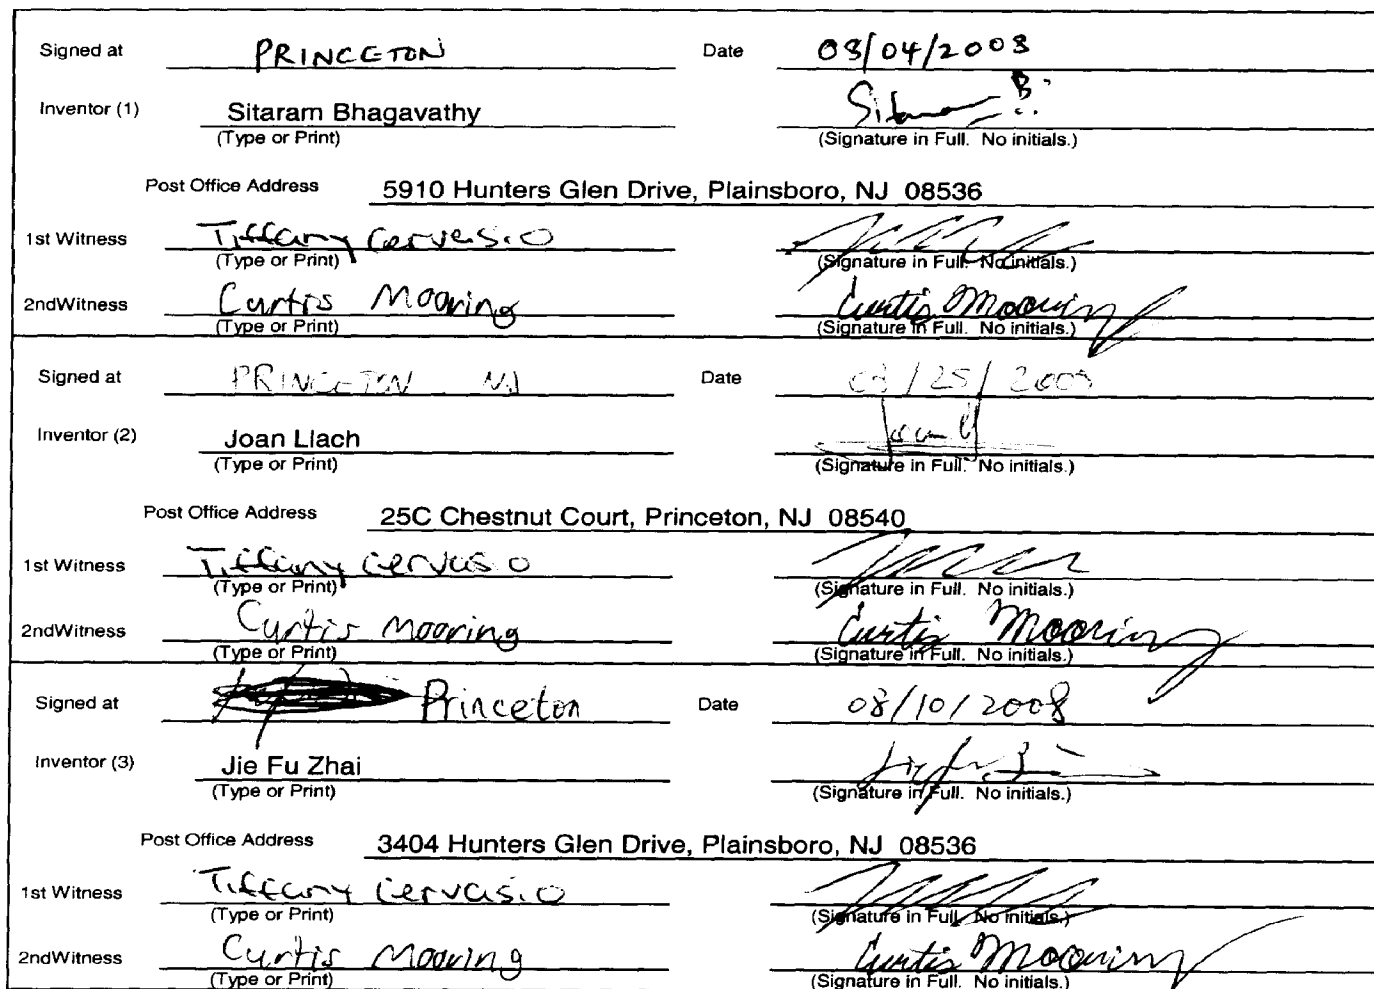 Signed at PRINCETON Date 08/04/2008
Inventor (1) Sitaram Bhagavathy
(Type or Print) (Signature in Full. No initials.)
Post Office Address 5910 Hunters Glen Drive, Plainsboro, NJ 08536
1st Witness Tiffany Cervasio
(Type or Print) (Signature in Full. No initials.)
2ndWitness Curtis Mooring Curtis Mooring
(Type or Print) (Signature in Full. No initials.)
Signed at PRINCETON NJ Date
Inventor (2) Joan Llach
(Type or Print) (Signature in Full. No initials.)
Post Office Address 25C Chestnut Court, Princeton, NJ 08540
1st Witness Tiffany Cervasio
(Type or Print) (Signature in Full. No initials.)
2ndWitness Curtis Mooring Curtis Mooring
(Type or Print) (Signature in Full. No initials.)
Signed at Princeton Date 08/10/2008
Inventor (3) Jie Fu Zhai
(Type or Print) (Signature in Full. No initials.)
Post Office Address 3404 Hunters Glen Drive, Plainsboro, NJ 08536
1st Witness Tiffany Cervasio
(Type or Print) (Signature in Full. No initials.)
2ndWitness Curtis Mooring Curtis Mooring
(Type or Print) (Signature in Full. No initials.)